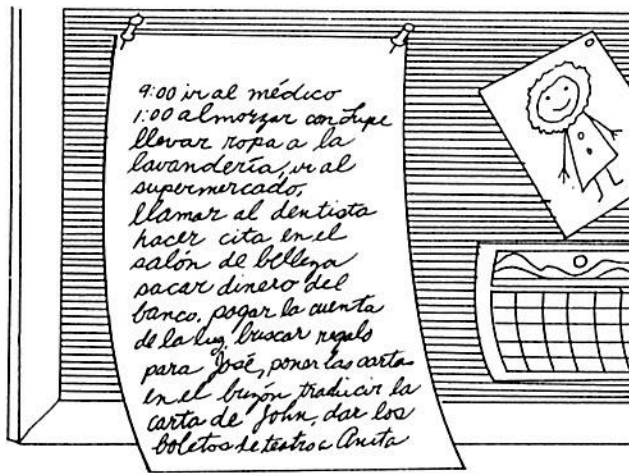 9:00 ir al médico
1:00 almorzar con Lupe
llevar ropa a la
lavandería, ir al
supermercado,
llamar al dentista
hacer cita en el
salón de belleza
sacar dinero del
banco, pagar la cuenta
de la luz, buscar regalo
para José, poner las carta
en el buzón, traducir la
carta de John, dar los
boletos de teatro a Anita